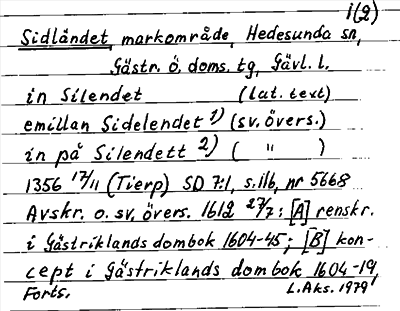 1(2)
Sidländet, markområde, Hedesunda sn,
Gästr. ö. doms. tg, Gävl. l.
in Silendet (lat. text)
emillan Sidelendet 1) (sv. övers.)
in på Silendett 2) ( " )
1356 17/11 (Tierp) SD 7:1, s. 116, nr 5668
Avskr. o. sv. övers. 1612 27/7: [A] renskr.
i Gästriklands dombok 1604-45; [B] kon-
cept i Gästriklands dombok 1604-19,
Forts. L. Aks. 1979